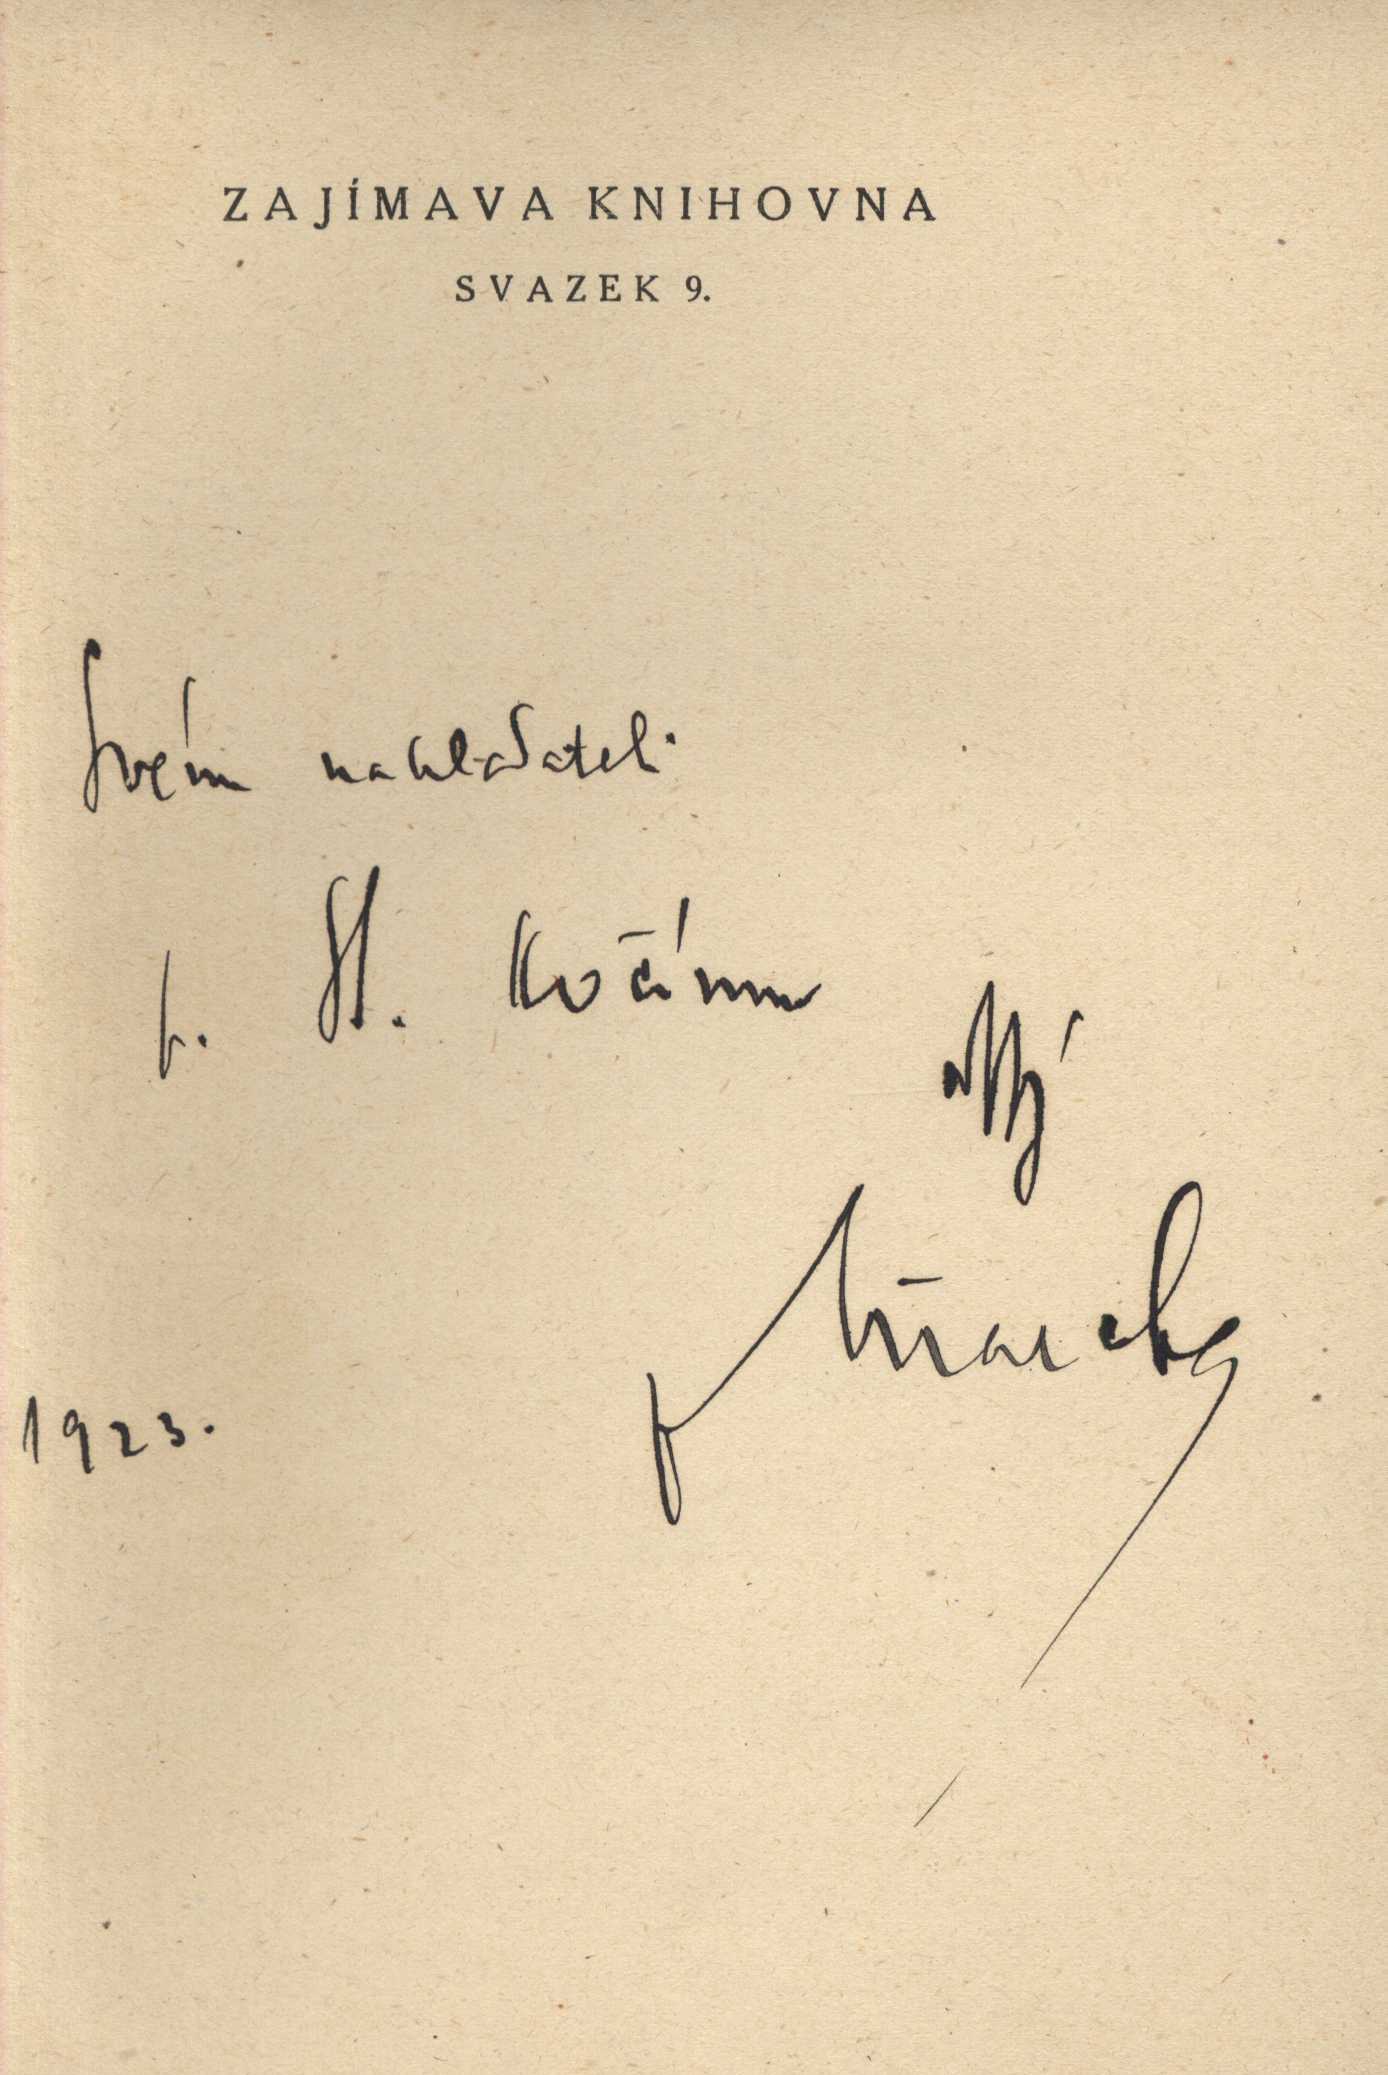 ZAJÍMAVA KNIHOVNA
SVAZEK 9.
Svém nakladateli
p. St. Kočímu
1923.